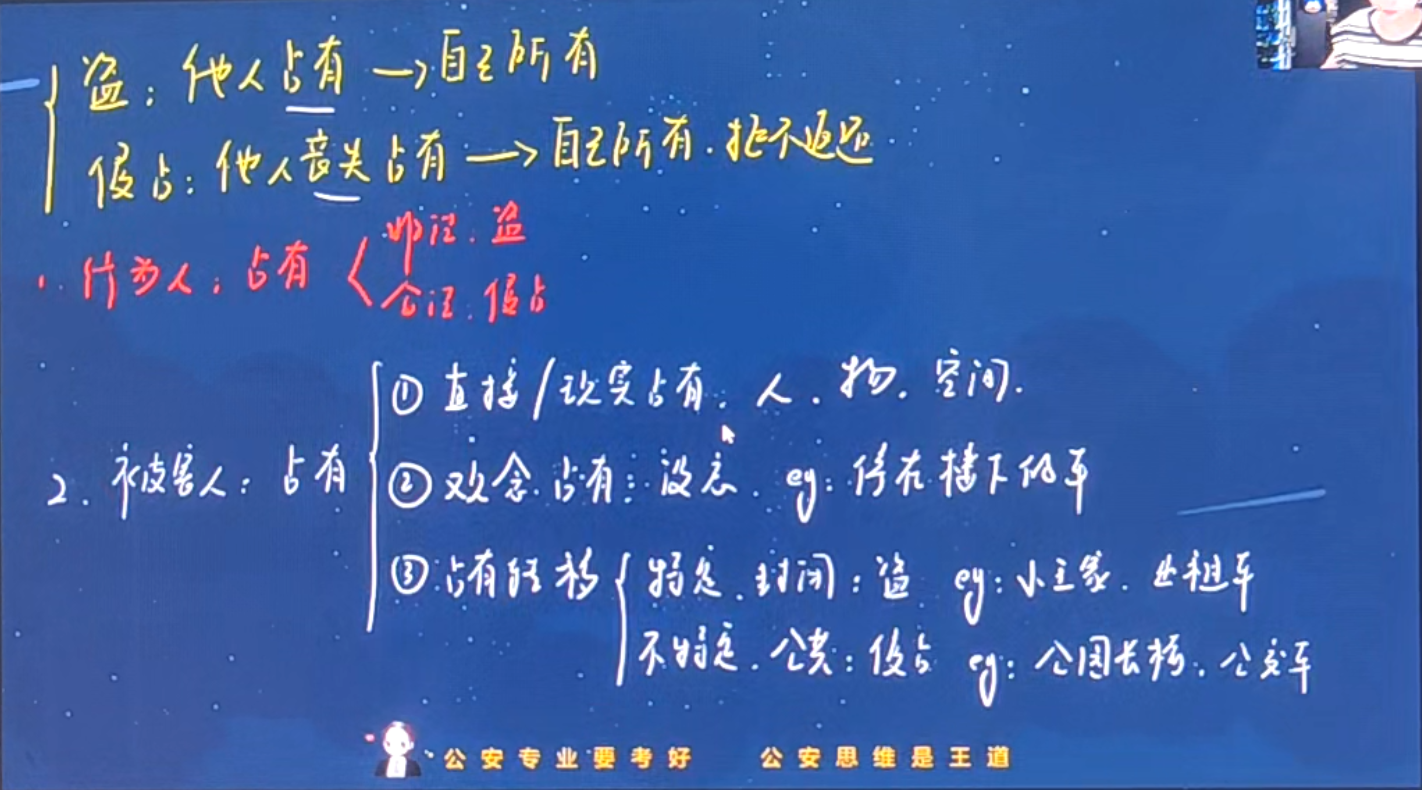 盗：他人占有→自己所有
侵占：他人丧失占有→自己所有.拒不返还
1.行为人：占有
即认.盗
合认.侵占
2.被害人：占有
①直接/现实占有：人.物.空间.
②观念占有：没忘.eg：停在楼下的车
③占有转移
特定.封闭：盗 eg：小王家.出租车
不特定.公共：侵占 eg：公园长椅.公交车
公安专业要考好 公安思维是王道